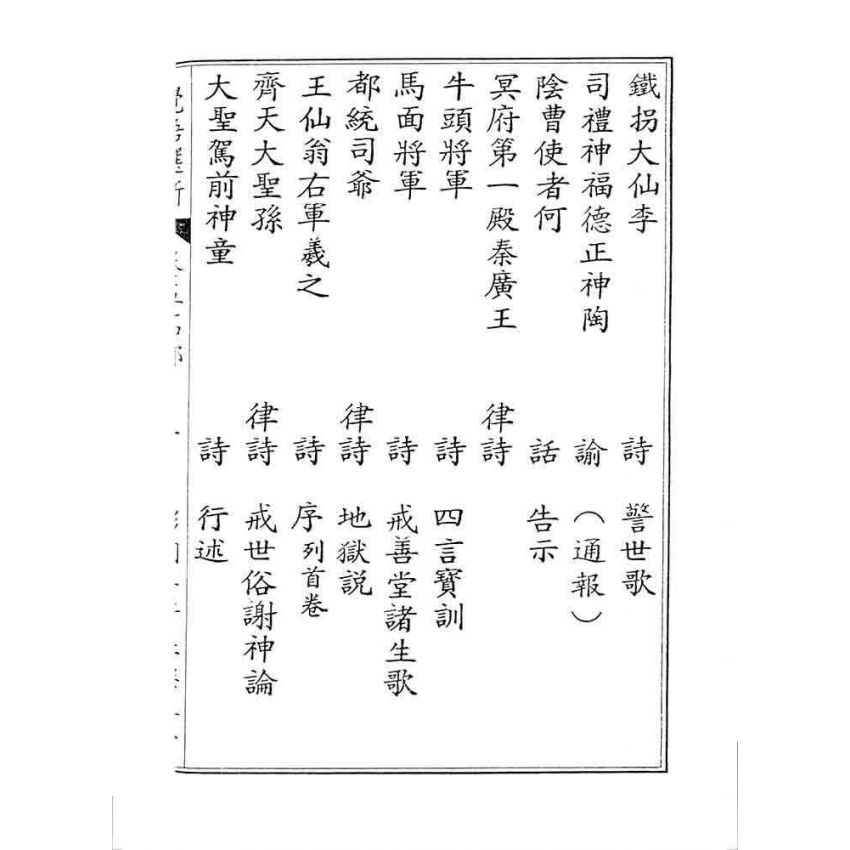 鐵拐大仙李 詩 警世歌
司禮神福德正神陶 諭 (通報)
陰曹使者何 話 告示
冥府第一殿秦廣王 律詩
牛頭將軍 詩 四言寶訓
馬面將軍 詩 戒善堂諸生歌
都統司爺 律詩 地獄説
王仙翁右軍羲之 詩 序列首卷
齊天大聖孫 律詩 戒世俗謝神論
大聖駕前神童 詩 行述